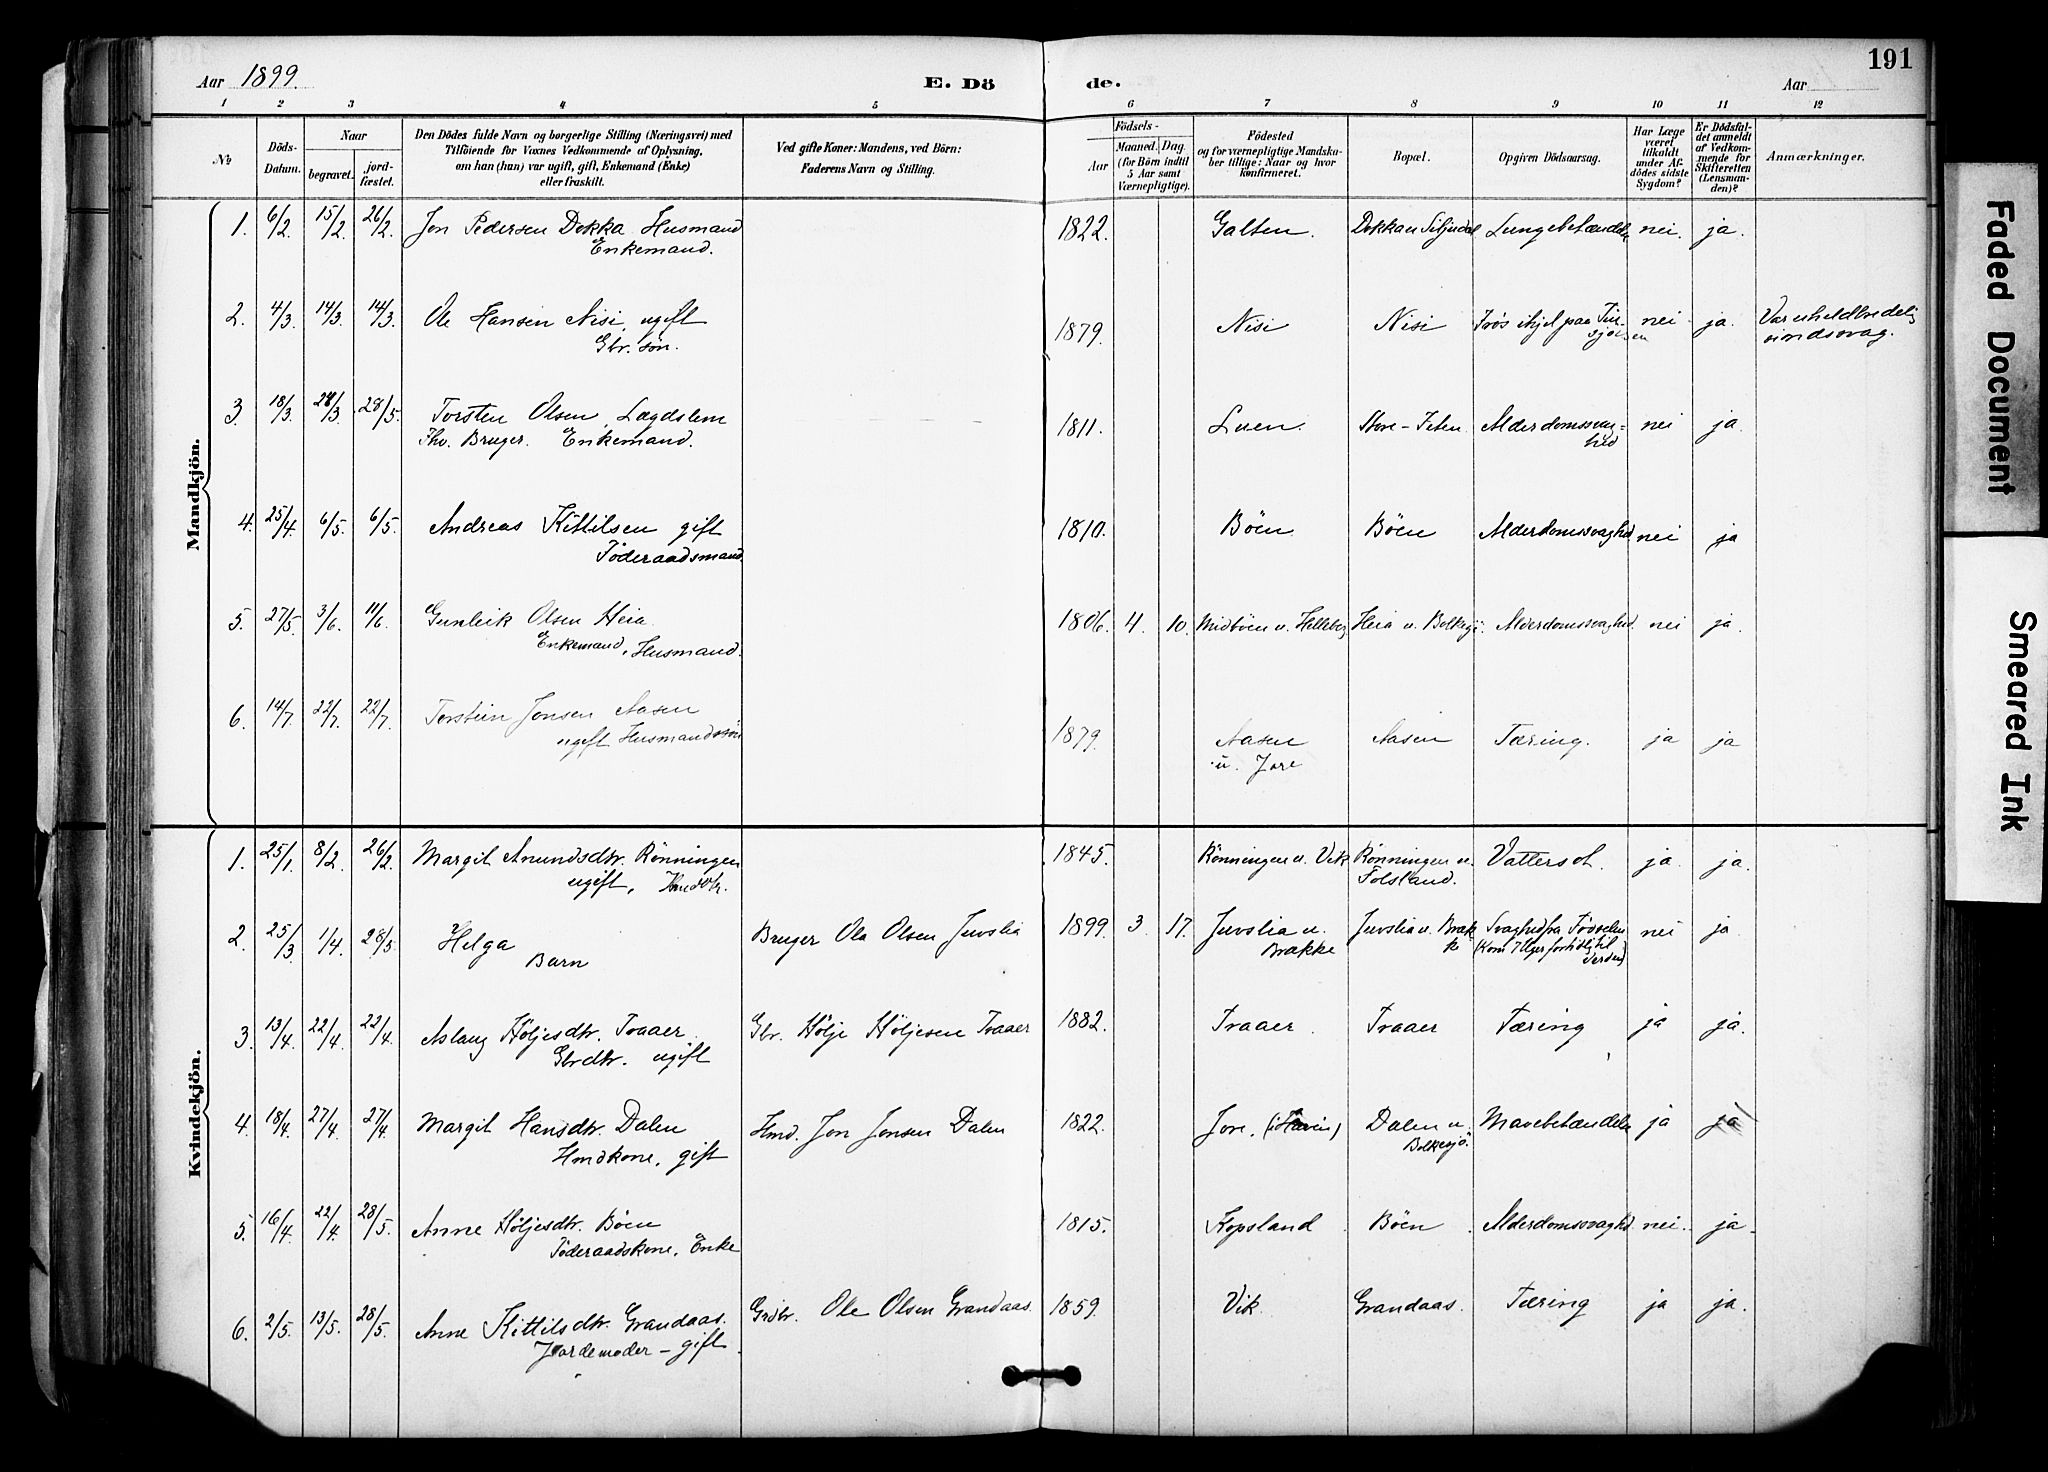 191
Aar 1899.
E. Dö
de.
Aar
1 2 3 4 5 6 7 8 9 10 11 12
No
Döds-
Datum.
Naar
begravet.
jord-
fæstet.
Den Dödes fulde Navn og borgerlige Stilling (Næringsvei) med
Tilföiende for Voxnes Vedkommende af Oplysning,
om han (hun) var ugift, gift, Enkemand (Enke)
eller fraskilt.
Ved gifte Koner: Mandens, ved Börn:
Faderens Navn og Stilling.
Födsels-
Aar
Maaned. Dag.
(for Börn indtil
5 Aar samt
Værnepligtige).
Födested
og for værnepligtige Mandska-
ber tillige: Naar og hvor
konfirmeret.
Bopæl.
Opgiven Dödsaarsag.
Har Læge
været
tilkaldt
under Af-
dödes sidste
Sygdom?
Er Dödsfal-
det anmeldt
af Vedkom-
mende for
Skifteretten
(Lensman-
den)?
Anmærkninger.
Mandkjön.
1. 6/2. 15/2. 26/2. Jon Pedersen Dokka Husmand 1822. Galten. Dokka u. nei. ja.
Enkemand.
2. 4/3. 14/3. 14/3. Ole Hansen Nisi, ugift 1879. Nisi Nisi Frøs ihjel paa Tin- nei ja.
Gbr. søn.
sjøen
Var uheldbredelig
sindssvag.
3 18/3. 28/3 28/5. Torsten Olsen, Lægdslem 1811. Luen. Alderdomssvag- nei ja.
Fhv. Bruger. Enkemand.
hed
4. 25/4. 6/5. 6/5. Andreas Kittilsen gift 1810. Böen Böen Alderdomssvaghed nei ja
Föderaadsmand
5. 27/5. 3/6. 11/6. Gunleik Olsen Heia 1806. 4. 10. Midböen u. Helleberg Heia u. Bolkesjø. Alderdomssvaghed. nei ja.
Enkemand, Husmand.
6. 14/7. 22/7. 22/7. Torstein Jonsen Aasen 1879. Aasen Aasen Tæring. ja ja
ugift Husmandssøn
u. Jore
Kvindekjön.
1. 25/1. 8/2. 26/2. Margit Amundsdtr. Rønningen 1845. Rønningen u. Vik Rønningen u. Vattersot. ja. ja.
ugift,
Folsland.
2. 25/3 1/4. 28/5. Helga Bruger Ola Olsen Juvslia 1899. 3. 17. Juvslia u. Juvslia u. Brak- Svaghed fra Fødselen nei ja
Barn
Brakke
ke
(Kom 7 Uger for tidlig til
Verden)
3. 13/4. 22/4. 22/4. Aslaug Höljesdtr. Traaer. Gbr. Hölje Höljesen Traaer 1882. Traaer. Traaer Tæring ja ja.
Gbrdtr. ugift
4. 18/4. 27/4. 27/4. Margit Hansdtr. Dalen Hmd. Jon Jonsen Dalen 1822. Jore. Dalen u. Mavebetændelse ja ja
Hmdkone, gift
Bolkesjö.
5. 16/4. 22/4. 28/5. Anne Höljesdtr. Böen 1815. Kopsland Böen Alderdomssvaghd. nei. ja.
Föderaadskone, Enke
6. 2/5. 13/5. 28/5. Anne Kittilsdtr. Grandaas. Grdbr. Ole Olsen Grandaas. 1859. Vik. Grandaas. Tæring ja ja.
Jordemoder - gift
Faded Document
Smeared Ink